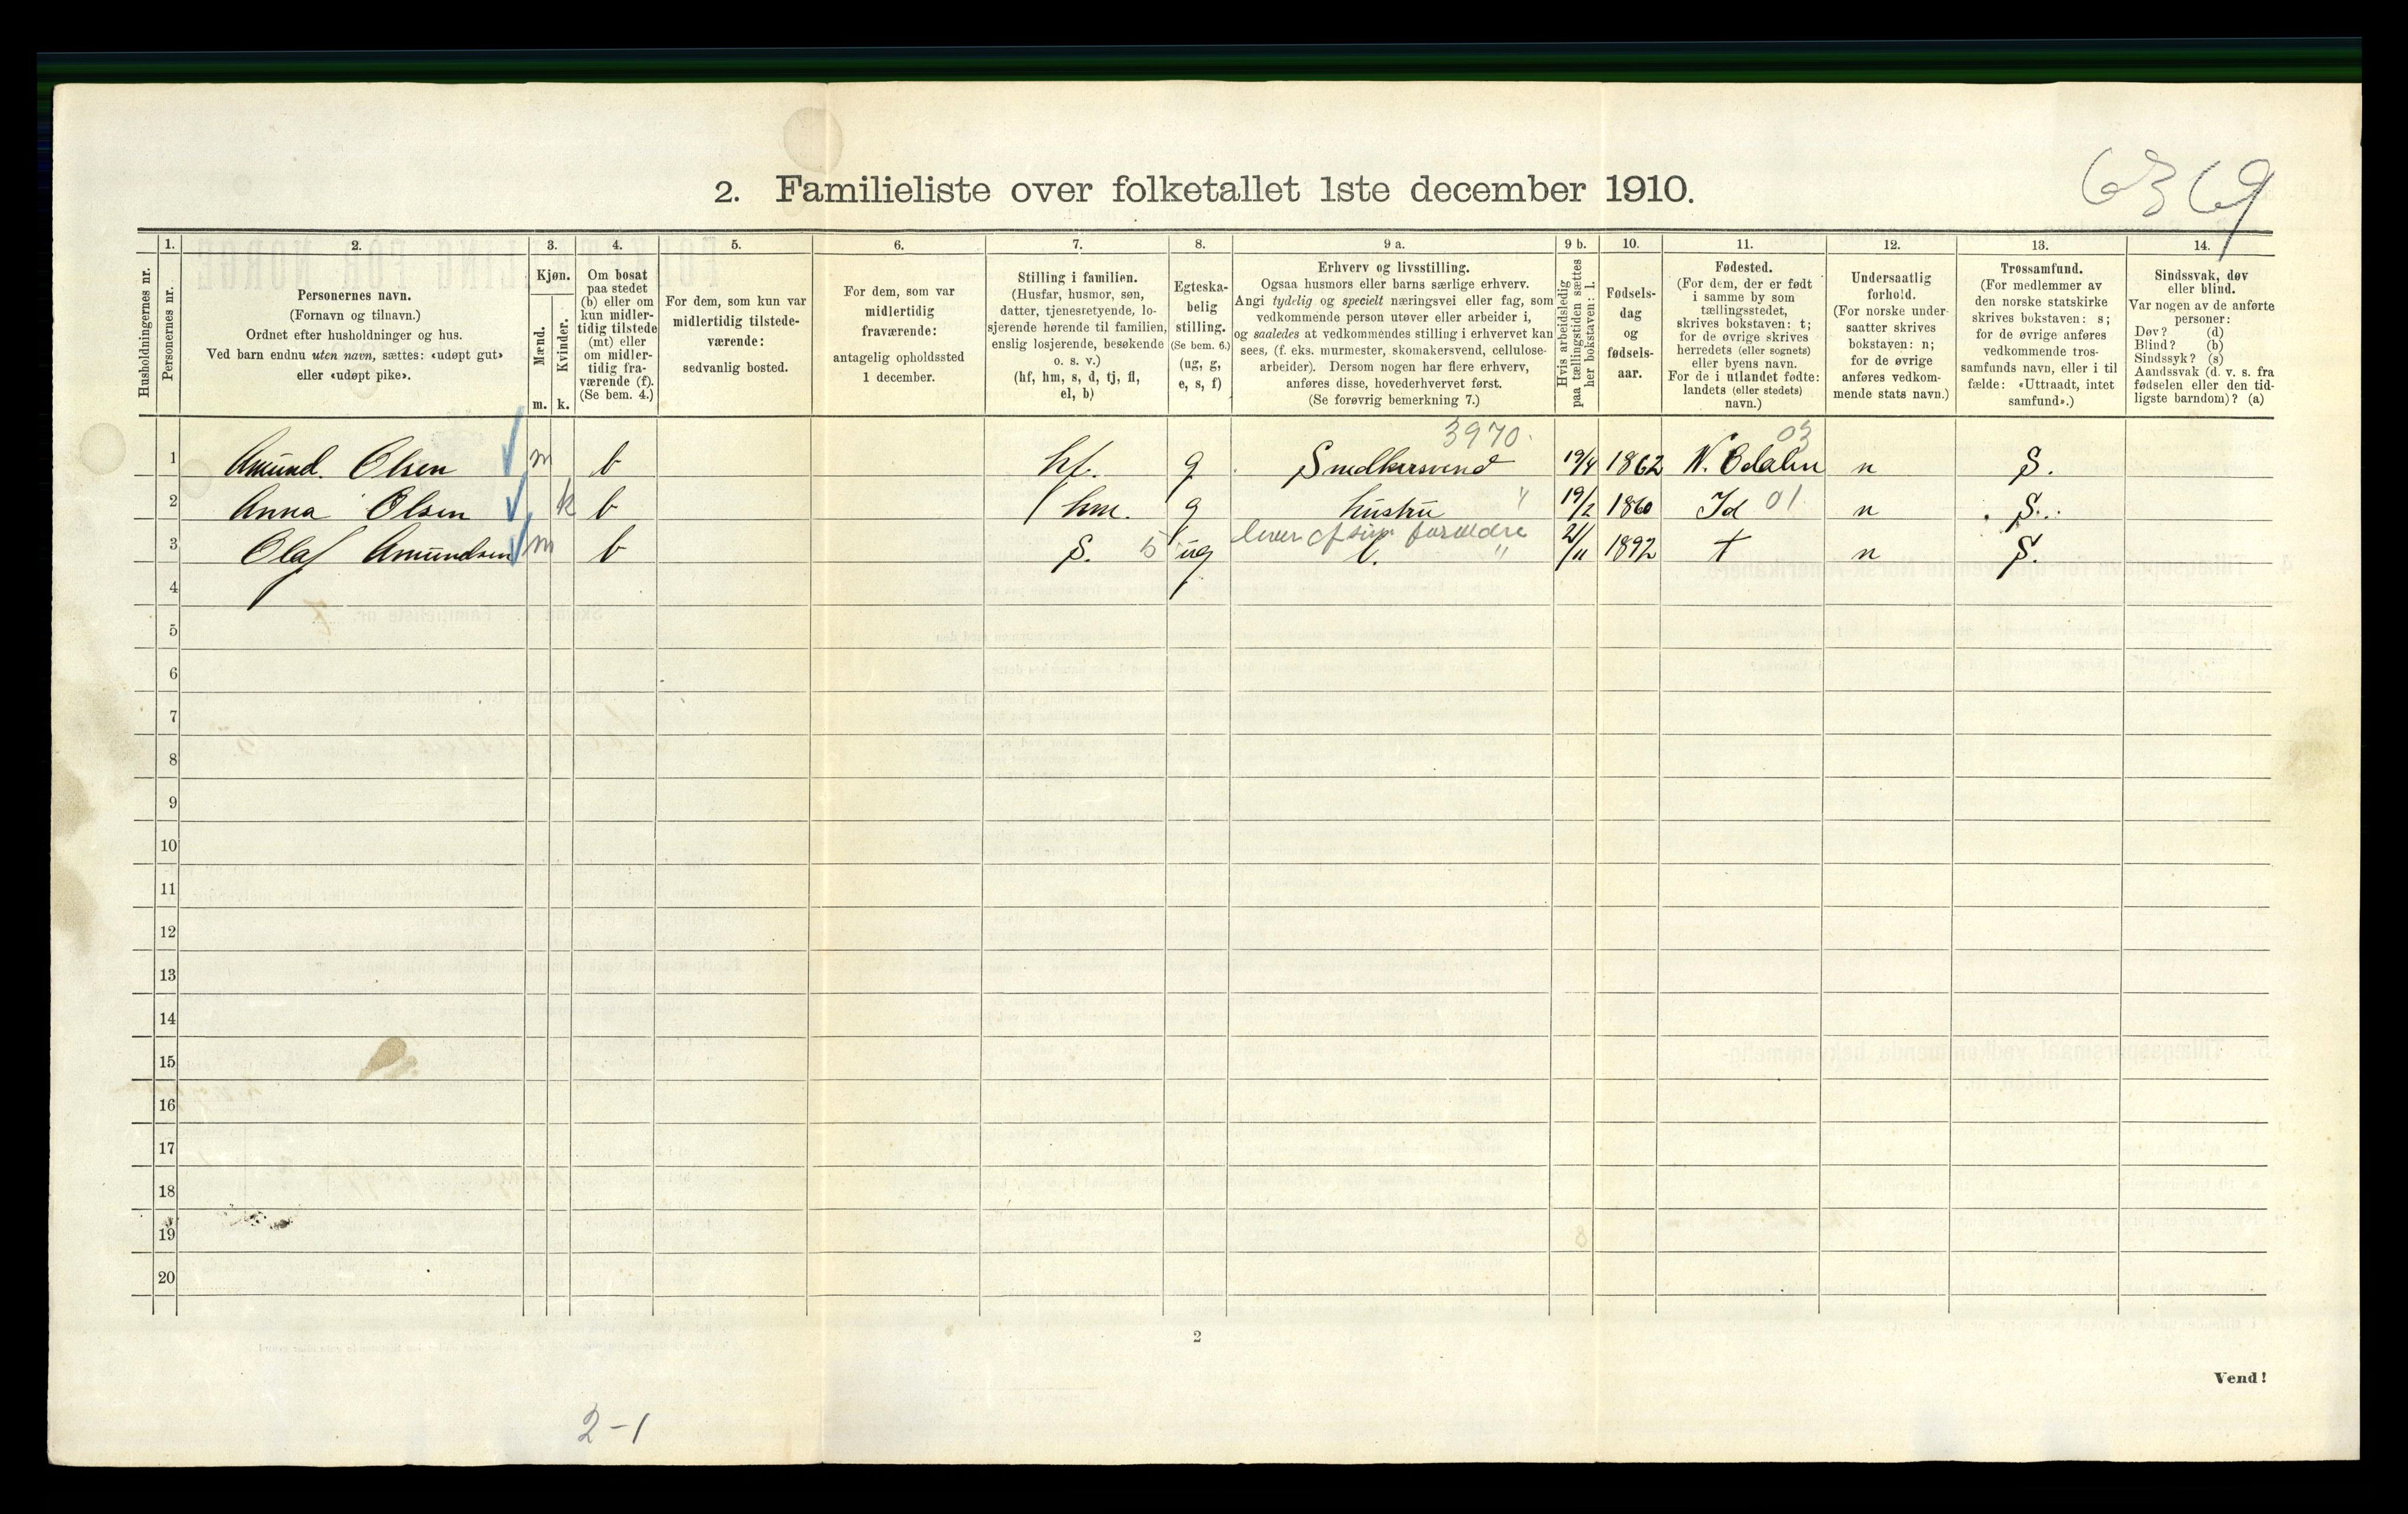 6369
2. Familieliste over folketallet 1ste december 1910.
Husholdningernes nr.
1.
Personernes nr.
2.
Personernes navn.
(Fornavn og tilnavn.)
Ordnet efter husholdninger og hus.
Ved barn endnu uten navn, sættes: «udøpt gut»
eller «udøpt pike».
3.
Kjøn.
Mænd.
Kvinder.
m. k.
4.
Om bosat
paa stedet
(b) eller om
kun midler-
tidig tilstede
(mt) eller
om midler-
tidig fra-
værende (f).
(Se bem. 4.)
5.
For dem, som kun var
midlertidig tilstede-
værende:
sedvanlig bosted.
6.
For dem, som var
midlertidig
fraværende:
antagelig opholdssted
1 december.
7.
Stilling i familien.
(Husfar, husmor, søn,
datter, tjenestetyende, lo-
sjerende hørende til familien,
enslig losjerende, besøkende
o. s. v.)
(hf, hm, s, d, tj, fl,
el, b)
8.
Egteska-
belig
stilling.
(Se bem. 6.)
(ug, g,
e, s, f)
9 a.
Erhverv og livsstilling.
Ogsaa husmors eller barns særlige erhverv.
Angi tydelig og specielt næringsvei eller fag, som
vedkommende person utøver eller arbeider i,
og saaledes at vedkommendes stilling i erhvervet kan
sees, (f. eks. murmester, skomakersvend, cellulose-
arbeider). Dersom nogen har flere erhverv,
anføres disse, hovederhvervet først.
(Se forøvrig bemerkning 7.)
9 b.
Hvis arbeidsledig
paa tællingstiden sættes
her bokstaven: l.
10.
Fødsels-
dag
og
fødsels-
aar.
11.
Fødested.
(For dem, der er født
i samme by som
tællingsstedet,
skrives bokstaven: t;
for de øvrige skrives
herredets (eller sognets)
eller byens navn.
For de i utlandet fødte:
landets (eller stedets)
navn.)
12.
Undersaatlig
forhold.
(For norske under-
saatter skrives
bokstaven: n;
for de øvrige
anføres vedkom-
mende stats navn.)
13.
Trossamfund.
(For medlemmer av
den norske statskirke
skrives bokstaven: s;
for de øvrige anføres
vedkommende tros-
samfunds navn, eller i til
fælde: «Uttraadt, intet
samfund».)
14.
Sindssvak, døv
eller blind.
Var nogen av de anførte
personer:
Døv? (d)
Blind? (b)
Sindssyk? (s)
Aandssvak (d. v. s. fra
fødselen eller den tid-
ligste barndom)? (a)
3970. 03
1 Amund. Olsen m b hf. g Smedkersvend 19/4 1862 N. Odalen n S.
2 Anna Olsen k b hm. g hustru " 19/2 1860 Id 01 n S.
lever af sine forældre
3 Olaf Amundsen m b S. 5 ug l. " 21/11 1892 t n S.
4
5
6
7
8
9
10
11
12
13
14
15
16
17
18
19
20
2
Vend!
2-1